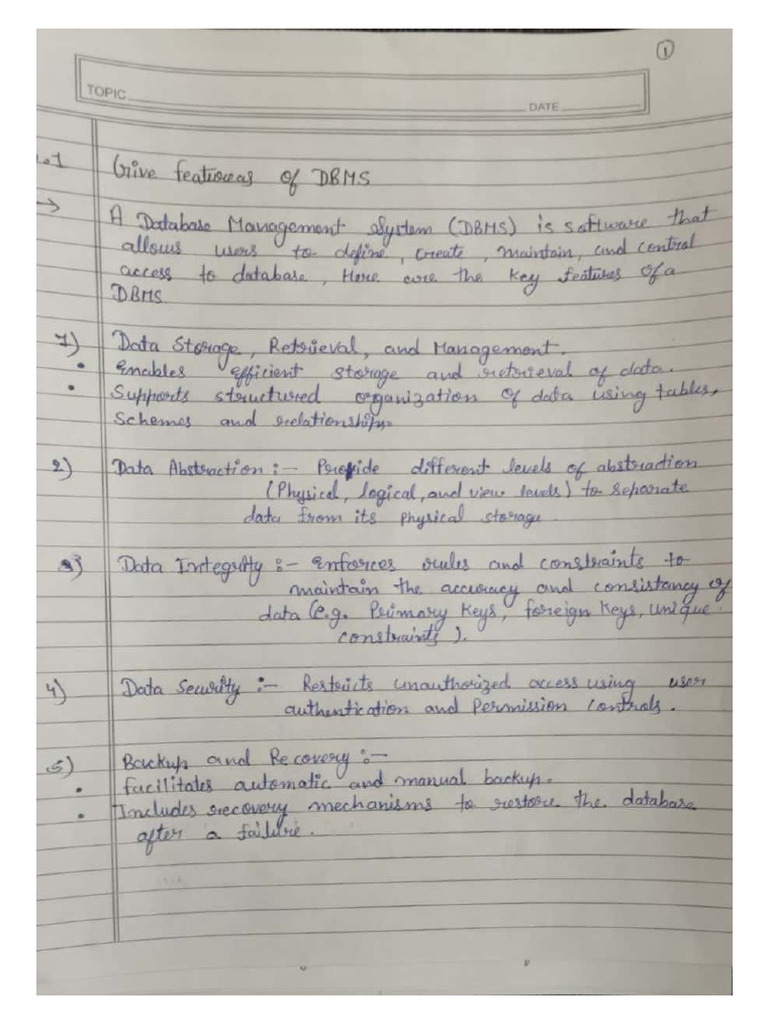 1
TOPIC
DATE
.1 Give features of DBMS
→ A Database Management System (DBMS) is software that
allows users to define, create, maintain, and control
access to database, Here are the key features of a
DBMS
1) Data Storage, Retrieval, and Management.
• Enables efficient storage and retrieval of data.
• Supports structured organization of data using tables,
Schemes and relationships.
2) Data Abstraction :- Provide different levels of abstraction
(Physical, logical, and view levels) to separate
data from its physical storage.
3) Data Integrity :- Enforces rules and constraints to
maintain the accuracy and consistancy of
data (e.g. Primary Keys, foreign Keys, unique
constraints).
4) Data Security :- Restricts unauthorized access using user
authentication and Permission controls.
5) Backup and Recovery :-
• facilitates automatic and manual backup.
• Includes recovery mechanisms to restore the database
after a failure.